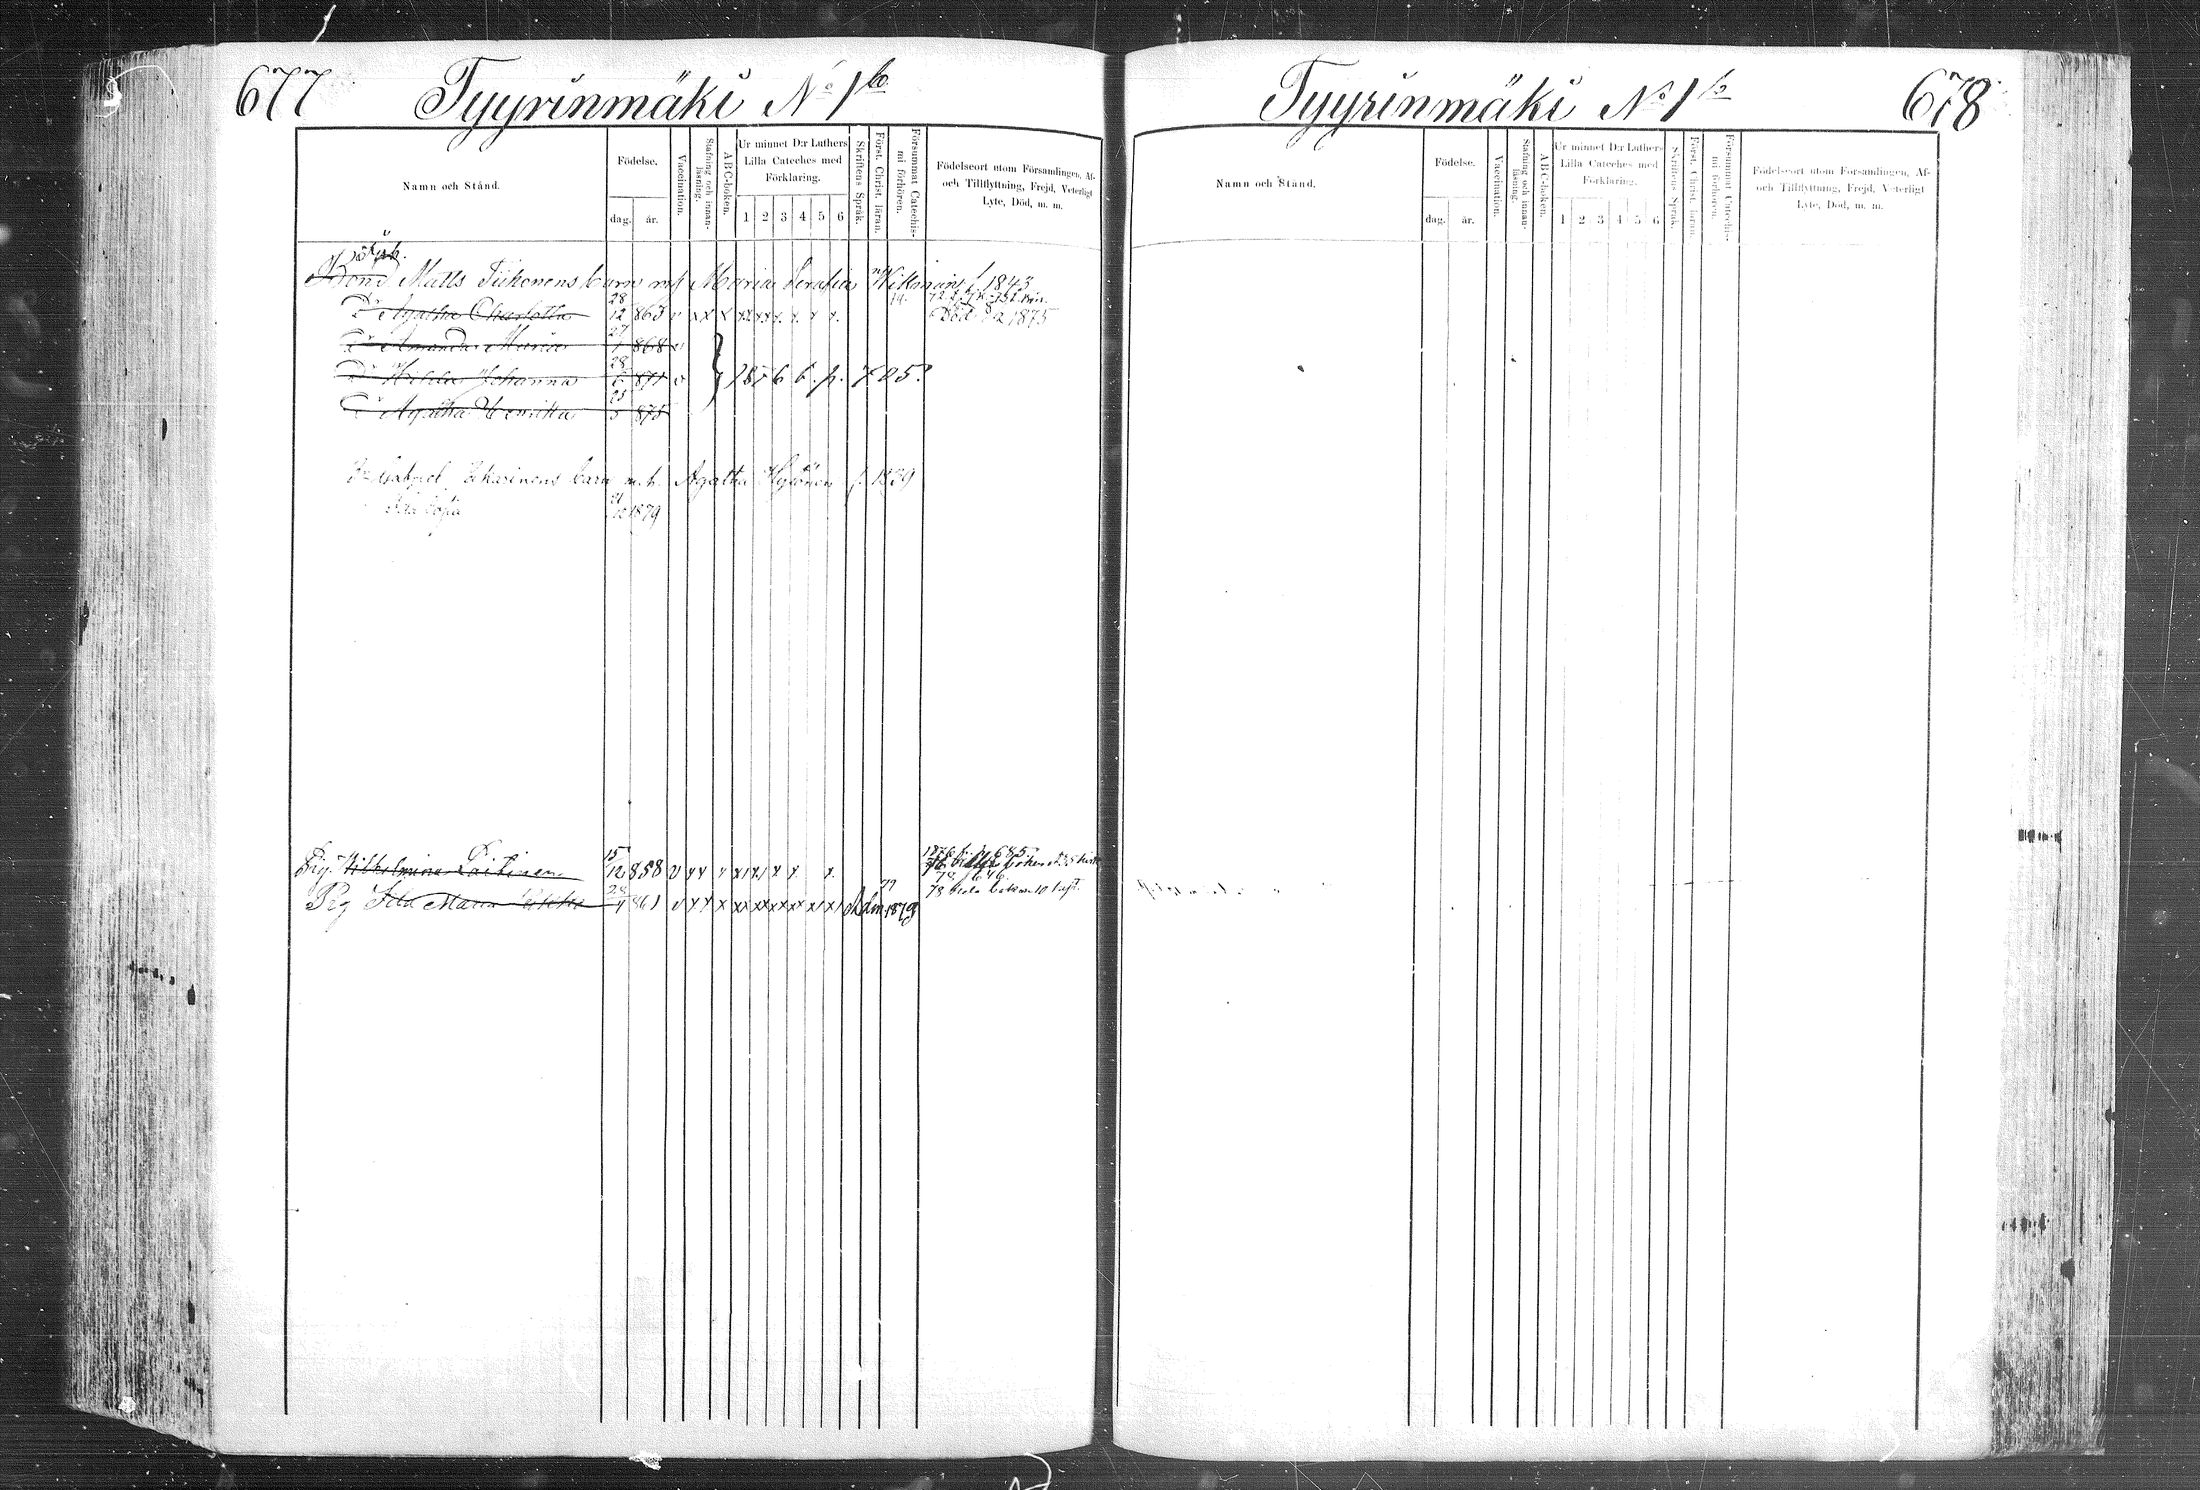 677 Tyyrinmäki No 1 b
Namn och Stånd.
Födelse.
dag. år.
Vaccination.
Stafning och innan-
läsning.
ABC-boken.
Ur minnet D:r Luthers
Lilla Cateches med
Förklaring.
1 2 3 4 5 6
Skriftens Språk.
Först. Christ. läran.
Försummat Catechis-
mi förhören.
Födelseort utom Församlingen, Af-
och Tillflyttning, Frejd, Veterligt
Lyte, Död, m. m.
Bond Matts Tiihonens barn m/ Maria Serafia Wikman f. 1843
Dr Agatha Charlotta 28/12 863 v x x x Död 1875
Dr Amanda Maria 27/1 868 v
Dr Hilda Johanna 28/6 871 v 1876 b. p. 705.
Dr Agatha Henrika 25/5 875
Gabriel barn m. h. Agatha Hytönen f. 1839
Ida Sofia 1879
Pig. Wilhelmina Laitinen 15/12 858 v x x x 1876 b. p. 685.
78 p. 646.
Pig Ida Maria 28/4 861 v x x x 1879
Tyyrinmäki No 1 b 678
Namn och Stånd.
Födelse.
dag. år.
Vaccination.
Stafning och innan-
läsning.
ABC-boken.
Ur minnet D:r Luthers
Lilla Cateches med
Förklaring.
1 2 3 4 5 6
Skriftens Språk.
Först. Christ. läran.
Försummat Catechis-
mi förhören.
Födelseort utom Församlingen, Af-
och Tillflyttning, Frejd, Veterligt
Lyte, Död, m. m.